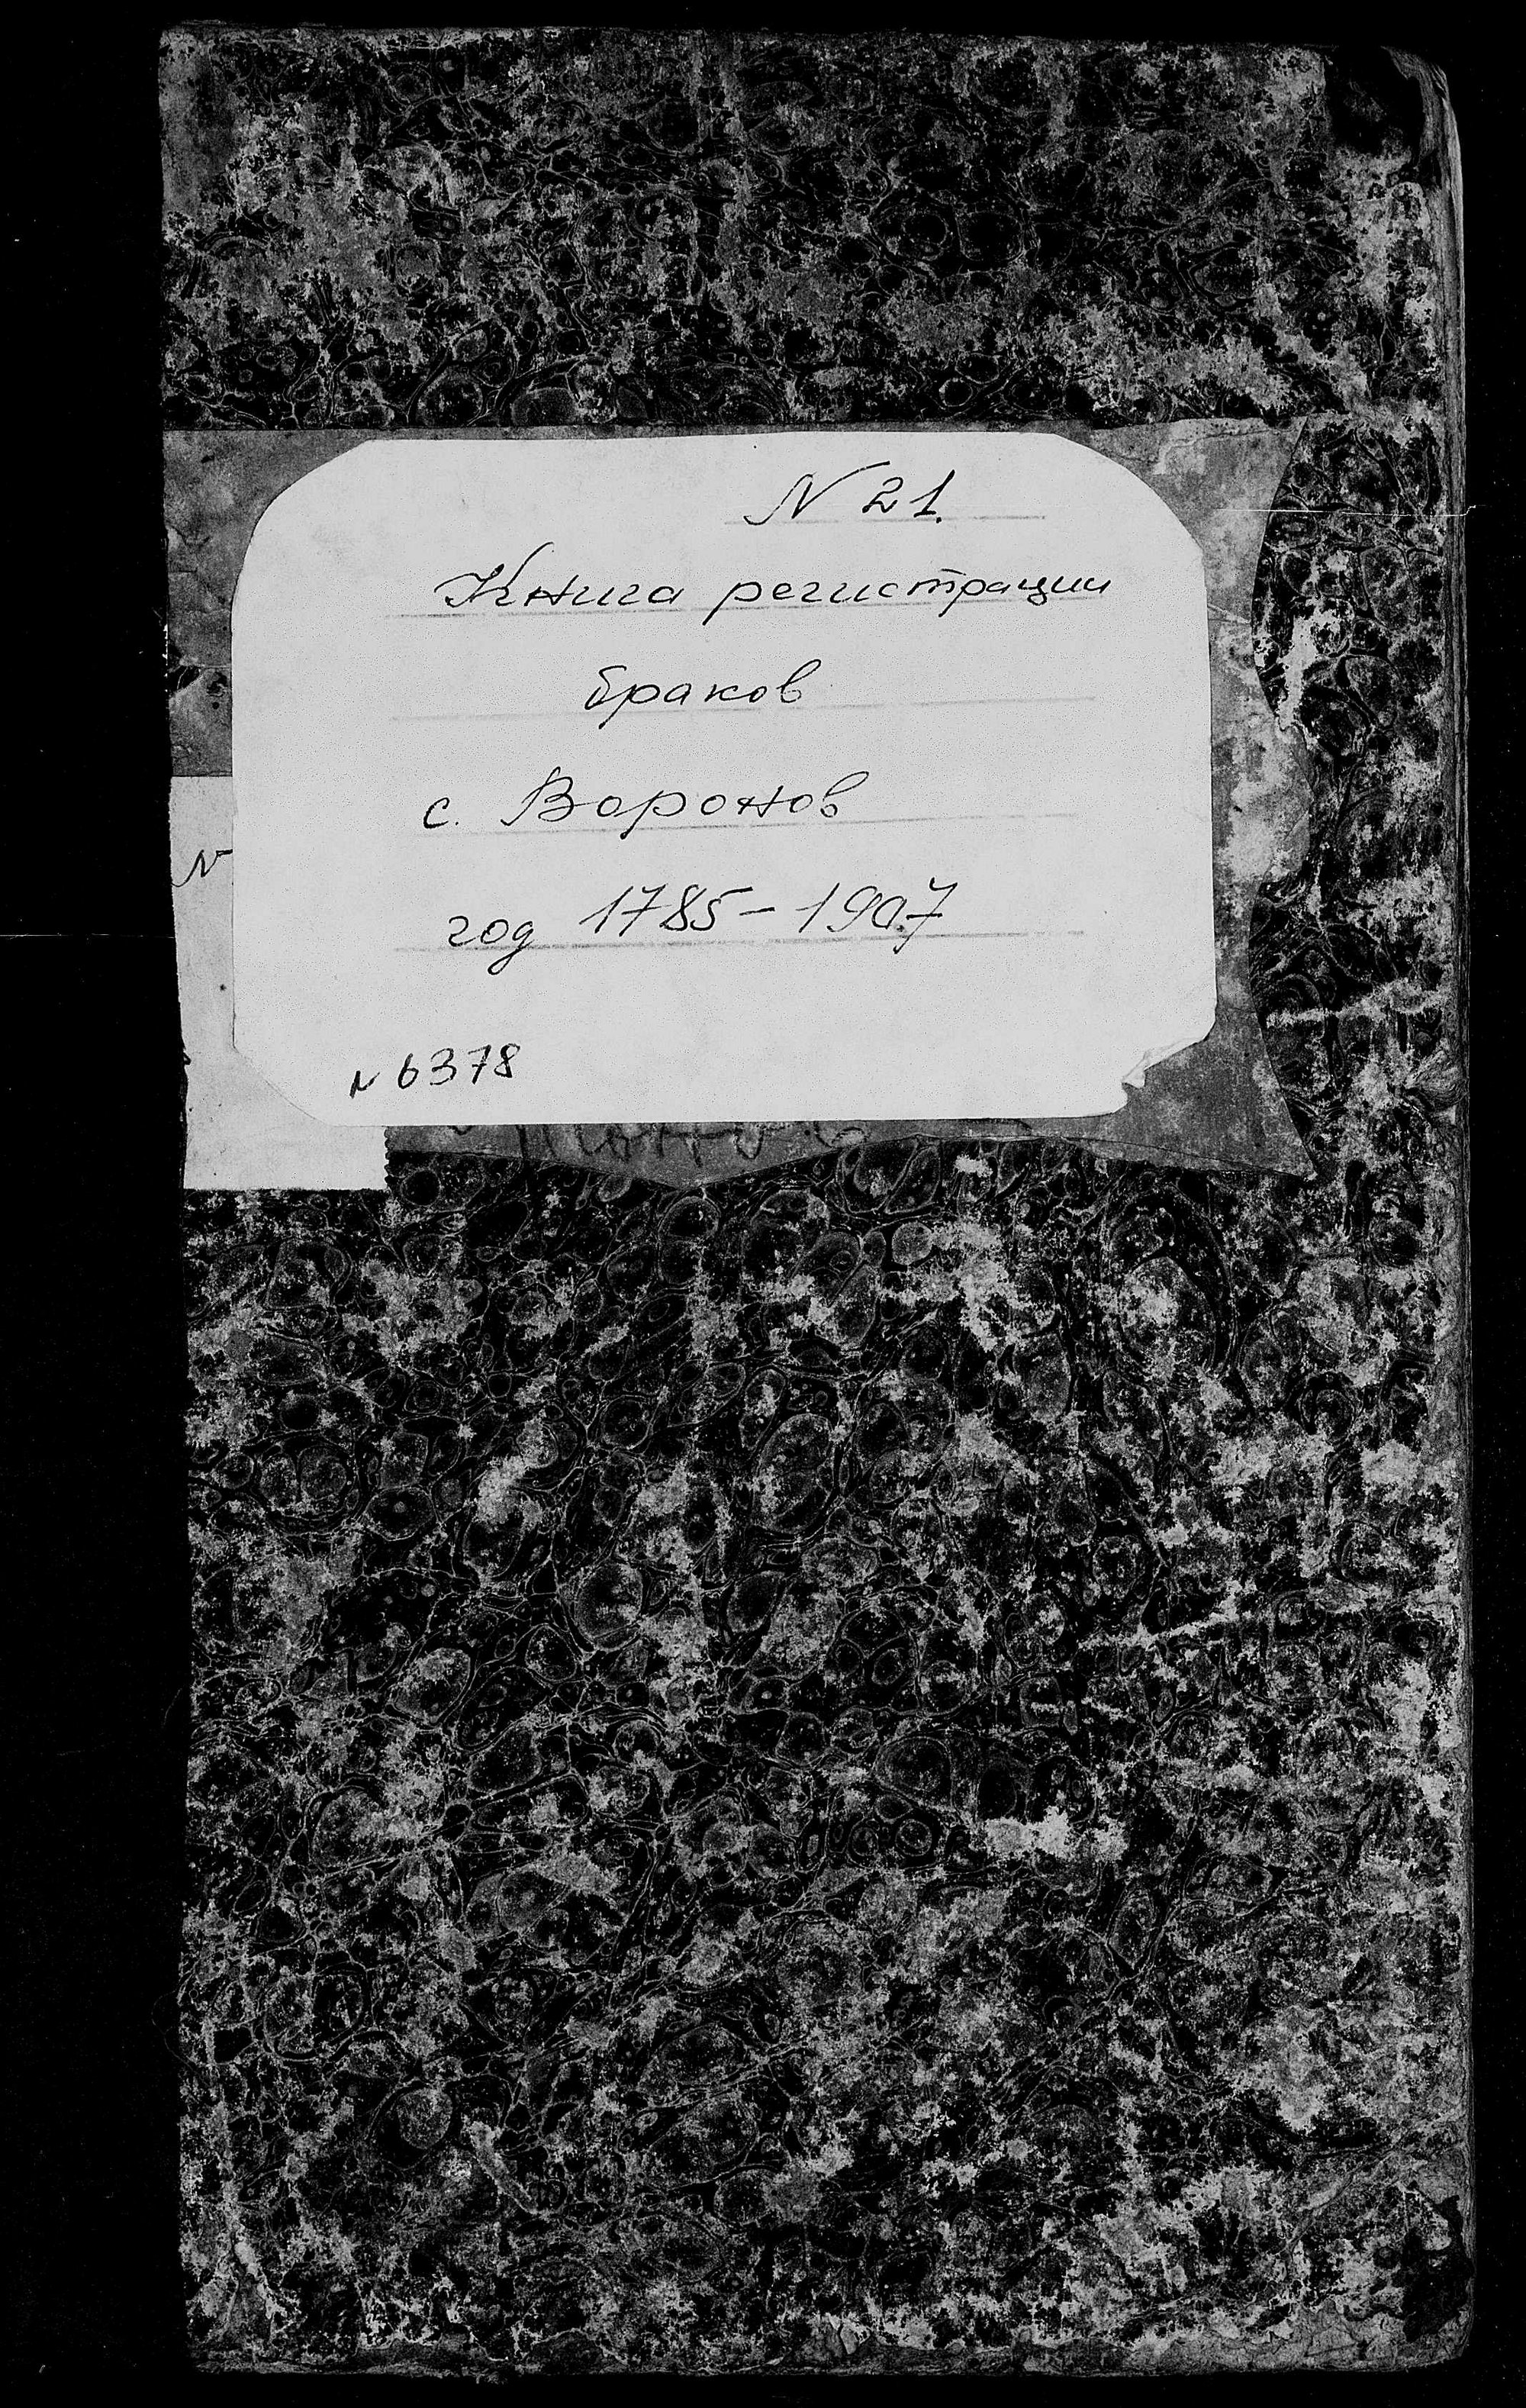 N 21.
Книга регистрации
браков
с. Воронов
N
год 1785-1907
N 6378